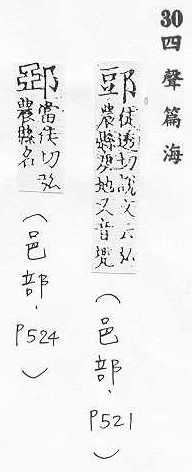 30四聲篇海
郖徒透切說文云弘
農縣庾地又音
（邑部，P521）
當徒切弘
農縣名
（邑部，P524）